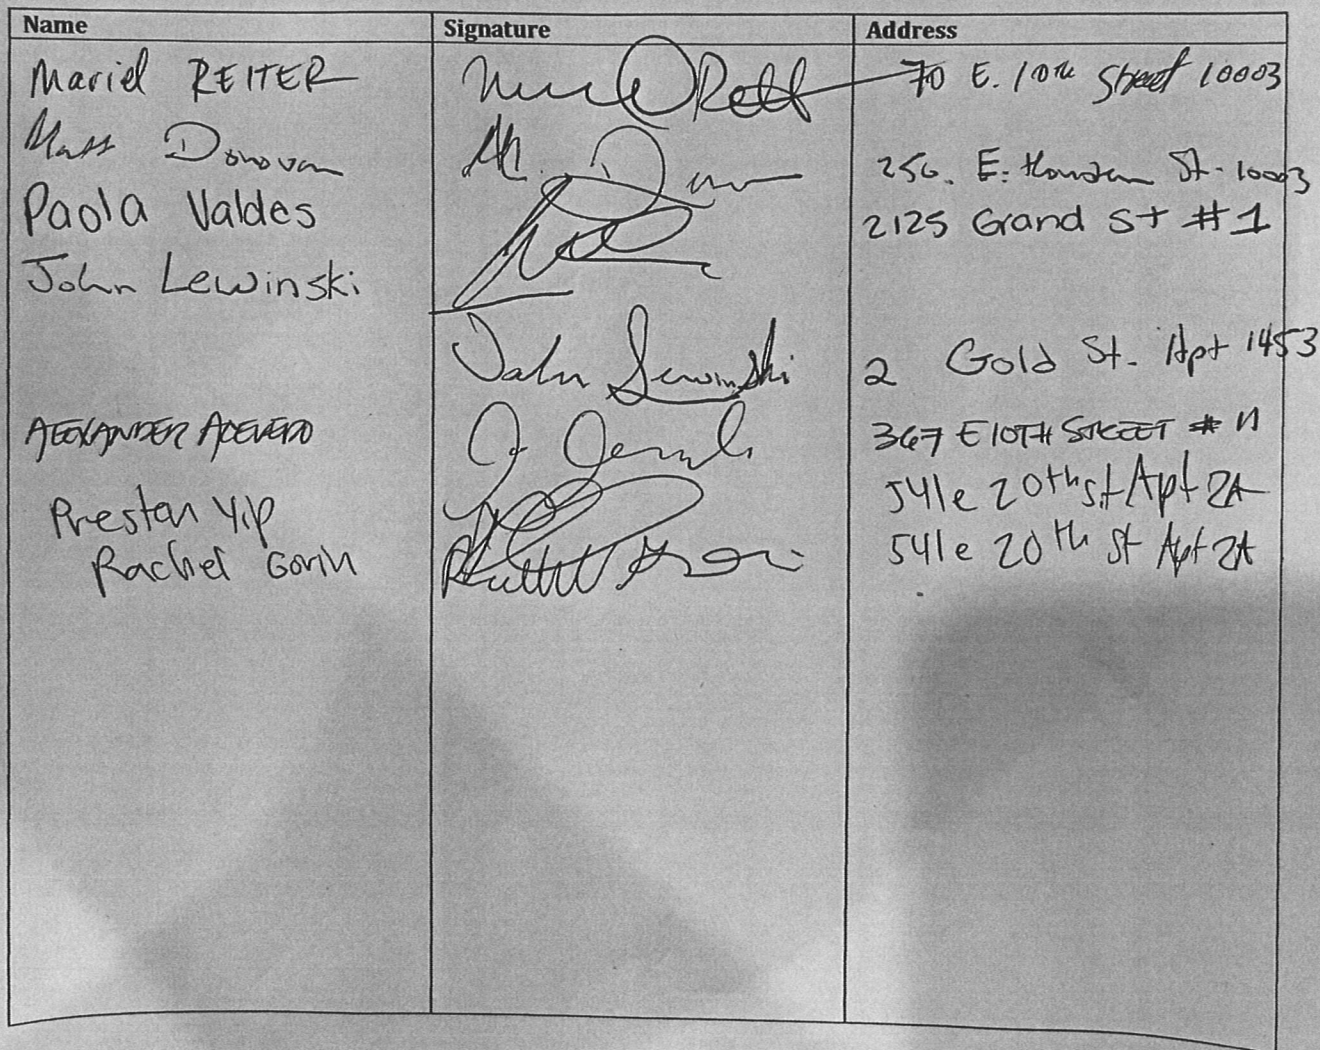 Name Signature Address
Mariel REITER 70 E. 10th Street 10003
Donovan 256. E. Houston St. 10003
Paola Valdes 2125 Grand St #1
John Lewinski
John Lewinski 2 Gold St. Apt 1453
ALEXANDER ACEVEDO 367 E 10TH STREET # 11
Preston Yip 541 e 20th st Apt 2A
Rachel Gorin 541 e 20th st Apt 2A